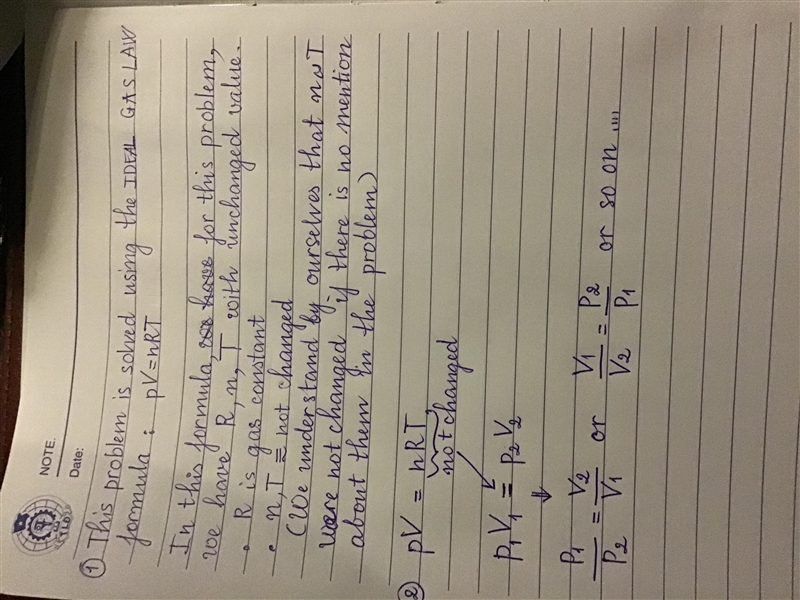 NOTE.
Date:
① This problem is solved using the IDEAL GAS LAW
formula : pV = nRT
In this formula, we have for this problem,
we have R, n, T with unchanged value.
• R is gas constant
• n, T = not changed
(We understand by ourselves that n T
were not changed if there is no mention
about them in the problem)
② pV = nRT
not changed
P₁V₁ = P₂V₂
⇓
P₁/P₂ = V₂/V₁ or V₁/V₂ = P₂/P₁ or so on ....